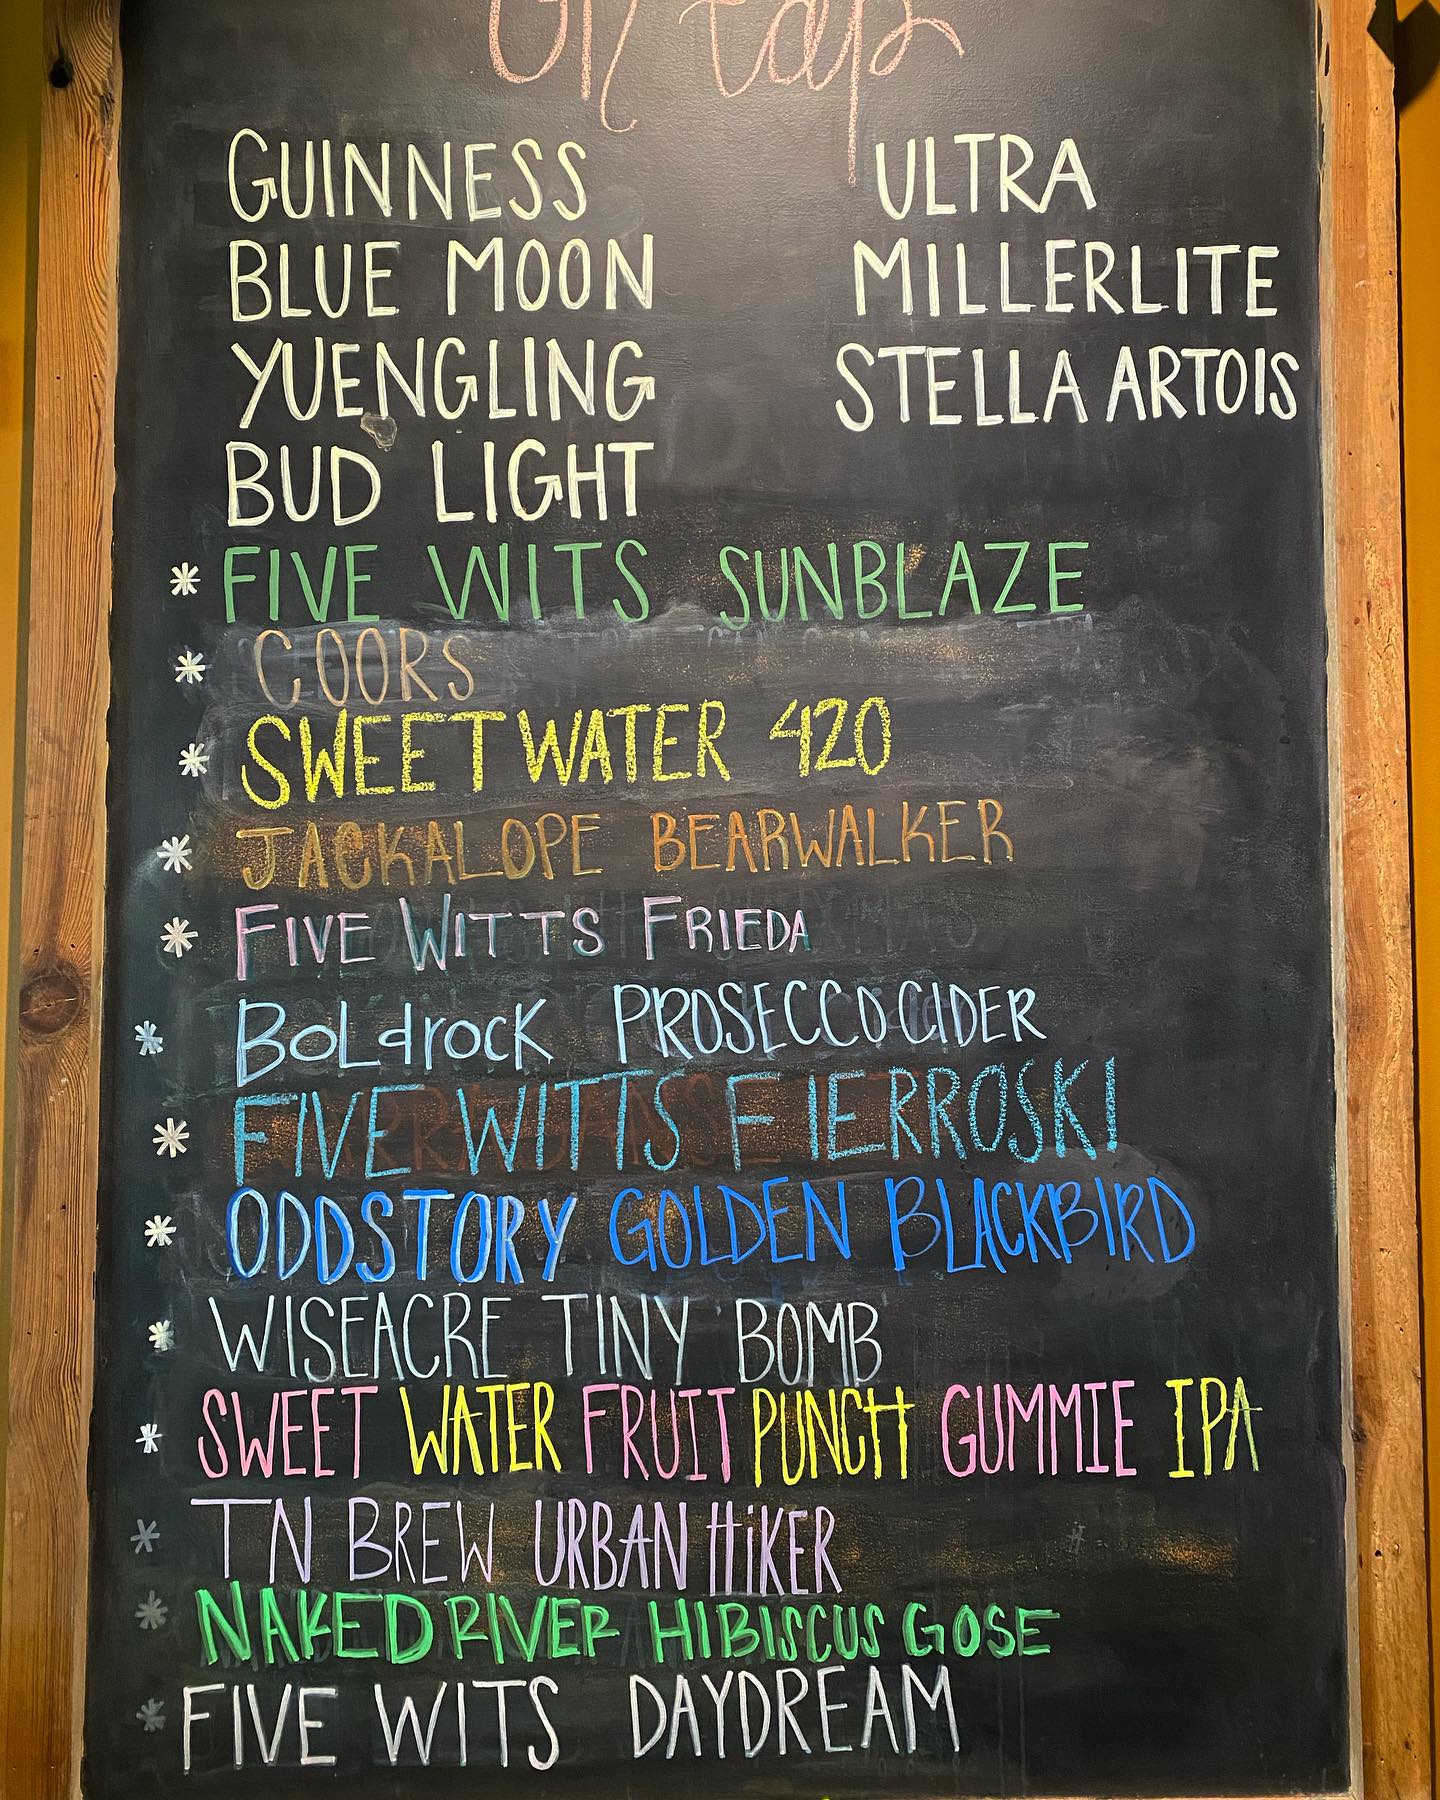 On tap
GUINNESS
BLUE MOON
YUENGLING
BUD LIGHT
ULTRA
MILLERLITE
STELLA ARTOIS
* FIVE WITS SUNBLAZE
* COORS
* SWEETWATER 420
* JACKALOPE BEARWALKER
* FIVE WITTS FRIEDA
* BoLdrocK PROSECCO CIDER
* FIVE WITTS FIERROSKI
* ODDSTORY GOLDEN BLACKBIRD
* WISEACRE TINY BOMB
* SWEET WATER FRUIT PUNCH GUMMIE IPA
* TN BREW URBAN HiKER
* NAKED RIVER HIBISCUS GOSE
* FIVE WITS DAYDREAM